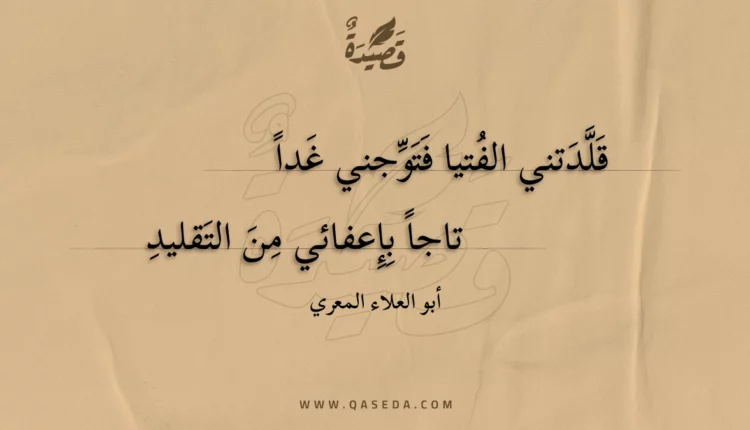 قَصِيْدَةٌ
قَلَّدَتني الفُتيا فَتَوِّجني غَداً
تاجاً بِإِعفائي مِنَ التَقليدِ
أبو العلاء المعري
WWW.QASEDA.COM